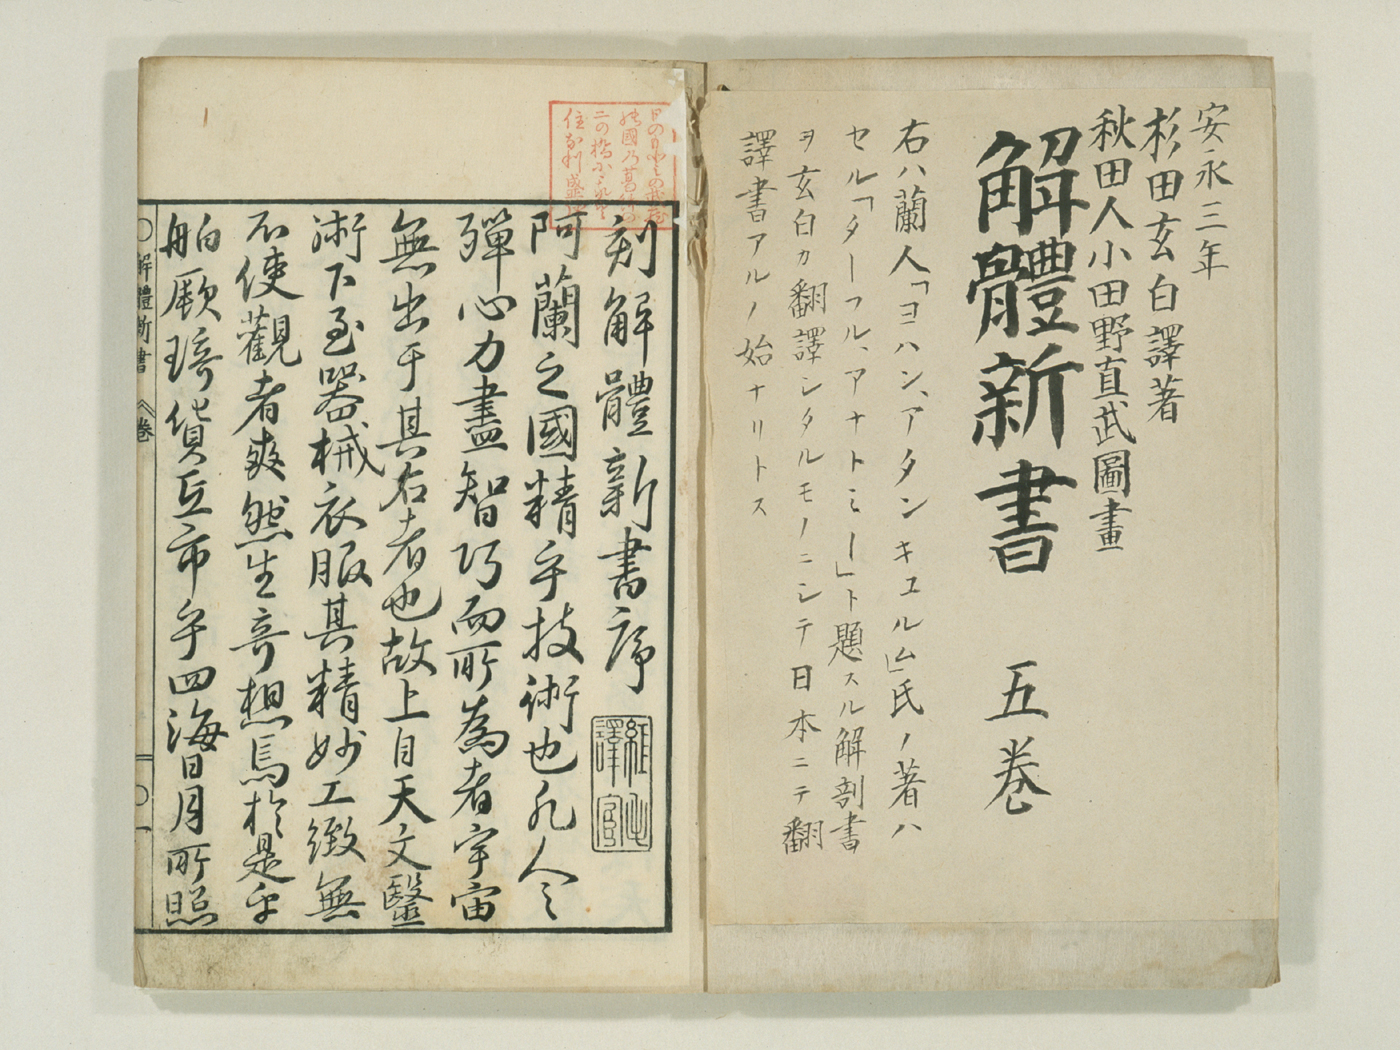 安永三年
杉田玄白譯著
秋田人小田野直武圖畫
解體新書 五巻
右ハ蘭人「ヨハン、アタンキユルム」氏ノ著ハ
セル「ターフル、アナトミー」ト題スル解剖書
ヲ玄白カ翻譯シタルモノニシテ日本ニテ翻
譯書アルノ始ナリトス
刻解體新書序
阿蘭之國精乎技術也凡人之
殫心力盡智巧而所為者宇宙
無出于其右者也故上自天文醫
術下至器械衣服其精妙工緻無
不使觀者爽然生奇想焉於是乎
舶厥琦貨互市乎四海日月所照
解體新書 巻